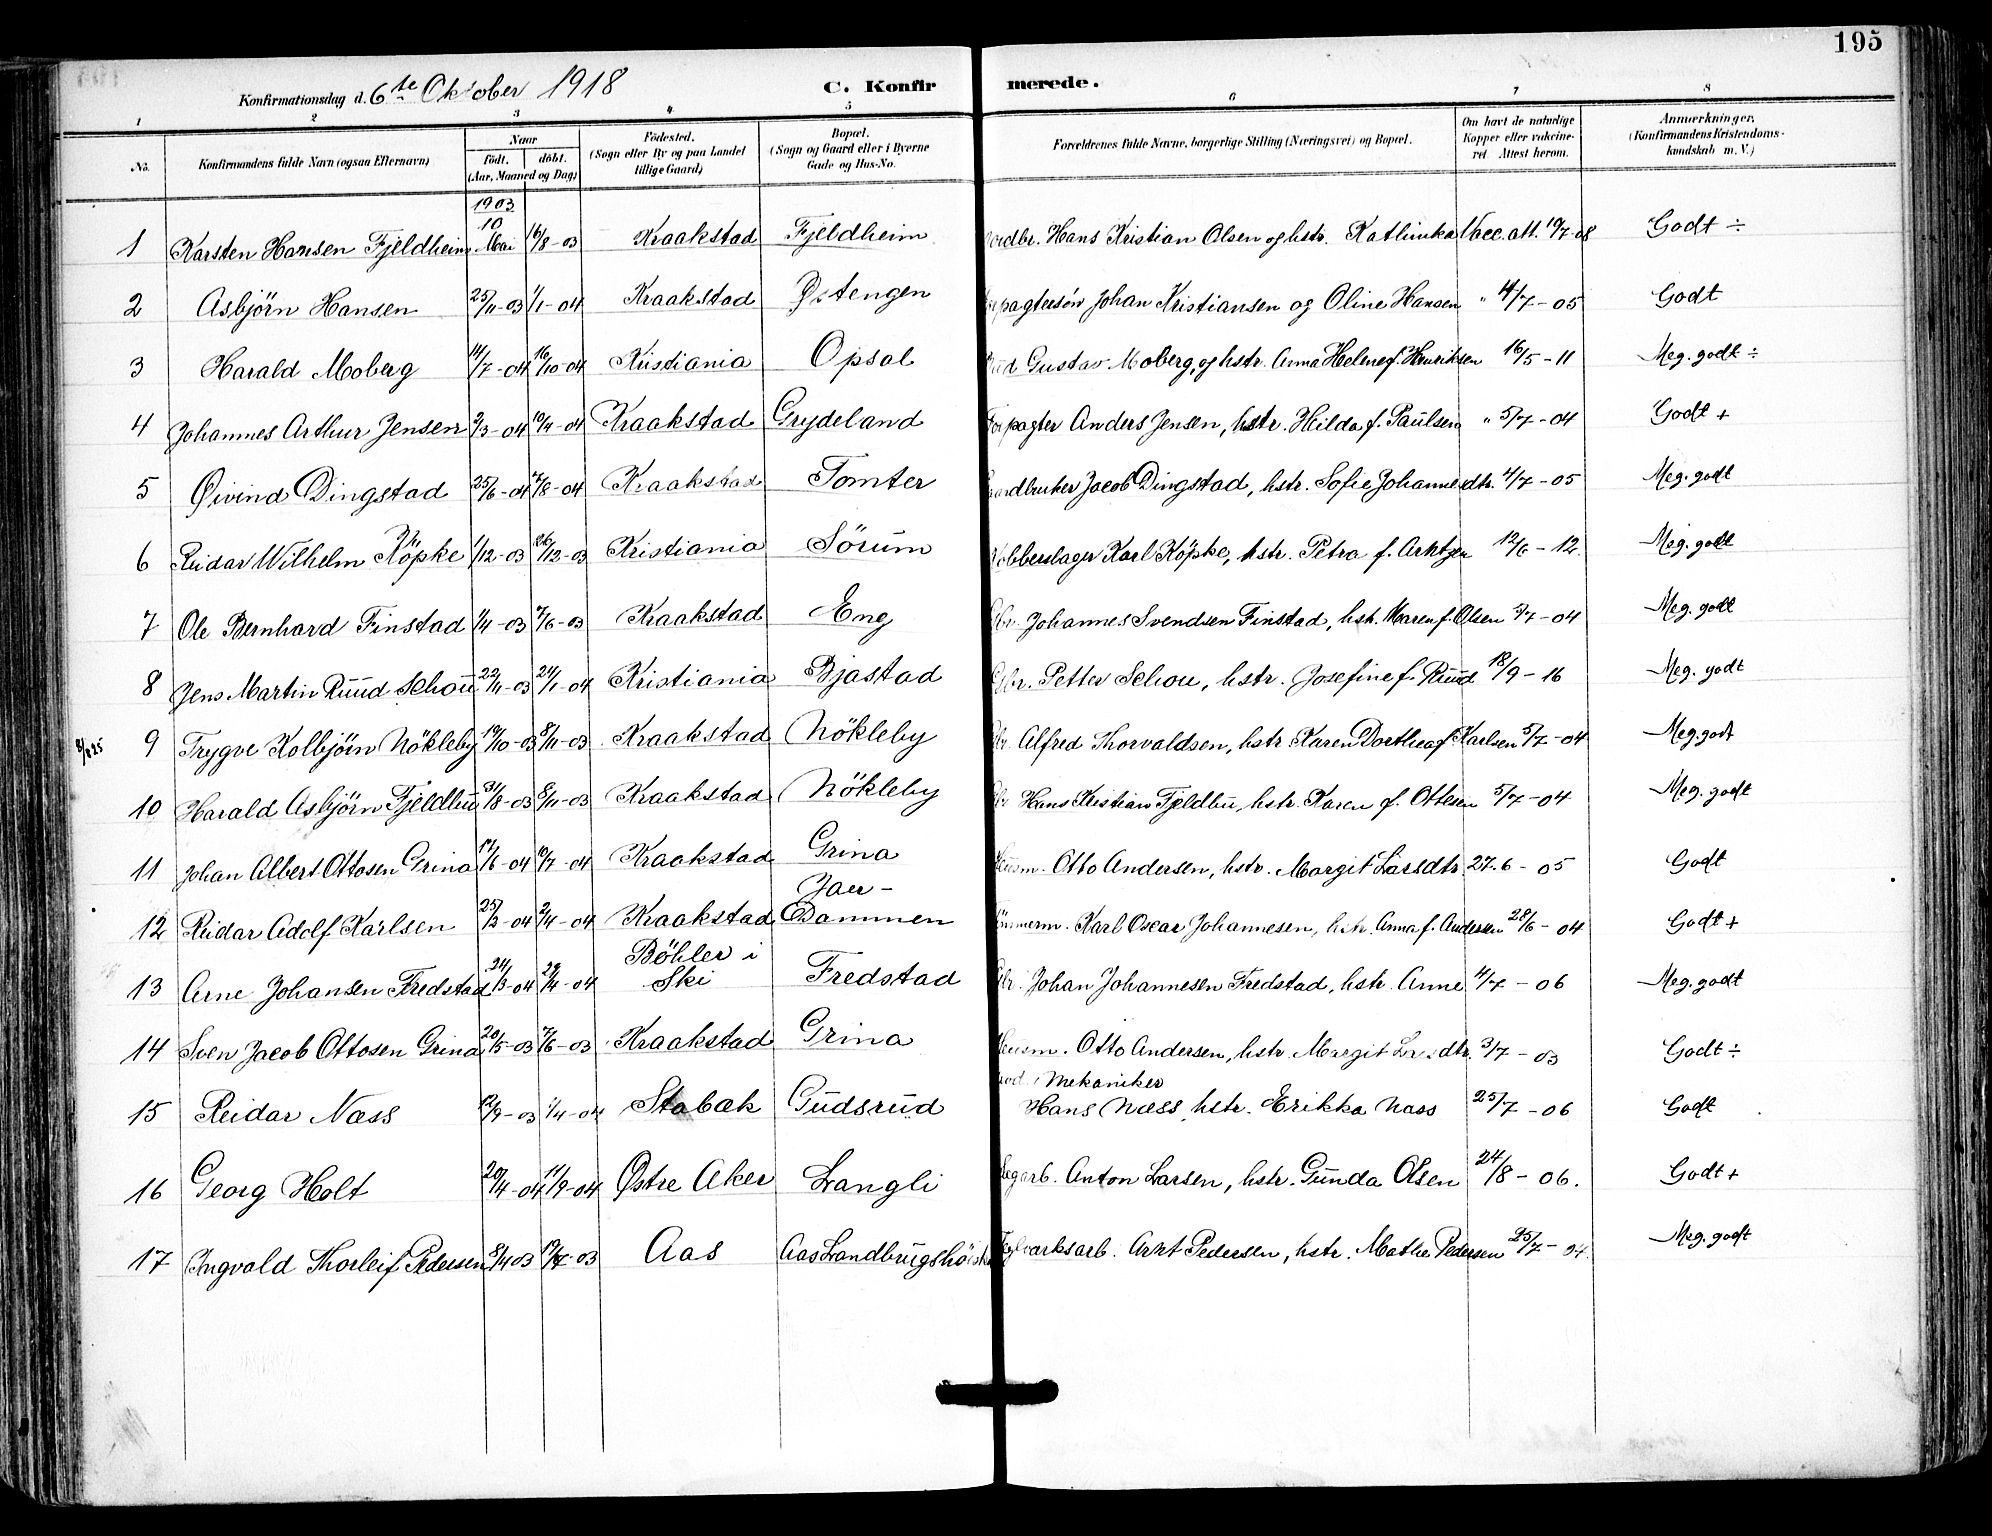 195
Konfirmationsdag d. 6te Oktober 1918 C. Konfirmerede.
1 2 3 4 5 6 7 8
No. Konfirmandens fulde Navn (ogsaa Efternavn) Naar født. døbt. (Aar, Maaned og Dag) Fødested. (Sogn eller By og paa Landet tillige Gaard) Bopæl. (Sogn og Gaard eller i Byerne Gade og Hus-No. Forældrenes fulde Navne, borgerlige Stilling (Næringsvei) og Bopæl. Om havt de naturlige Kopper eller vakcineret Attest herom. Anmærkninger. (Konfirmandens Kristendomskundskab m. V.)
1903
1 Karsten Hansen Fjeldheim 10 Mai 16/8-03 Kraakstad Fjeldheim Hans Kristian Olsen og hstr. Kathinka Vacc. att. 19/7-08 Godt ÷
2 Asbjörn Hansen 25/11-03 1/1-04 Kraakstad Østengen Johan Kristiansen og Oline Hansen " 4/7-05 Godt
3 Harald Moberg 14/7-04 16/10-04 Kristiania Opsal Gustav Moberg, og hstr. Anna Helene f. Henriksen 16/5-11 Meg. godt ÷
4 Johannes Arthur Jensen 2/3-04 10/4-04 Kraakstad Grydeland Forpagter Anders Jensen, hstr. Hilda f. Paulsen " 5/7-04 Godt +
5 Øivind Dingstad 25/6-04 7/8-04 Kraakstad Tomter Gaardbruker Jacob Dingstad, hstr. Sofie Johannesdtr. 4/7-05 Meg. godt
6 Reidar Wilhelm Köpke 1/12-03 26/12-03 Kristiania Sörum Kobberslager Karl Köpke, hstr. Petra f. 12/6-12 Meg. godt
7 Ole Bernhard Finstad 1/4-03 7/6-03 Kraakstad Eng Gbr. Johannes Svendsen Finstad, hstr. Maren f. Olsen 5/7-04 Meg. godt
8 Jens Martin Ruud Schou 22/11-03 24/1-04 Kristiania Bjastad Gbr. Petter Schou, hstr. Josefine f. Ruud 18/9-16 Meg. godt
9 Trygve Kolbjörn Nökleby 19/10-03 8/11-03 Kraakstad Nökleby Gbr. Alfred Thorvaldsen, hstr. Karen Dorthea f. Karlsen 5/7-04 Meg. godt
10 Harald Asbjörn Fjeldbu 31/8-03 8/11-03 Kraakstad Nökleby Gbr. Hans Kristian Fjeldbu, hstr. Karen f. Ottesen 5/7-04 Meg. godt
11 Johan Albert Ottosen Grina 17/6-04 10/7-04 Kraakstad Grina Husm. Otto Andersen, hstr. Margit Larsdtr. 27.6-05 Godt
12 Reidar Adolf Karlsen 25/2-04 2/4-04 Kraakstad Jaer-Dammen Tömmerm. Karl Oscar Johannesen, hstr. Anna f. Andersen 28/6-04 Godt +
13 Arne Johansen Fredstad 24/3-04 24/4-04 Böhler i Ski Fredstad Gbr. Johan Johannesen Fredstad, hstr. Anne 4/7-06 Meg. godt
14 Sven Jacob Ottosen Grina 20/5-03 7/6-03 Kraakstad Grina Husm. Otto Andersen, hstr. Margit Larsdtr. 3/7-03 Godt ÷
15 Reidar Næss 12/9-03 1/4-04 Stabæk Gudsrud Mekaniker Hans Næss, hstr. Erikka Næss 25/7-06 Godt
16 Georg Holt 20/4-04 11/9-04 Østre Aker Langli Anton Larsen, hstr. Gunda Olsen 24/8-06. Godt +
17 Ingvald Thorleif Pedersen 8/4 03 19/7-03 Aas Aas Landbrugshöisk. Teglværksarb. Pedersen, hstr. Mathe Pedersen 25/7-04. Meg. godt